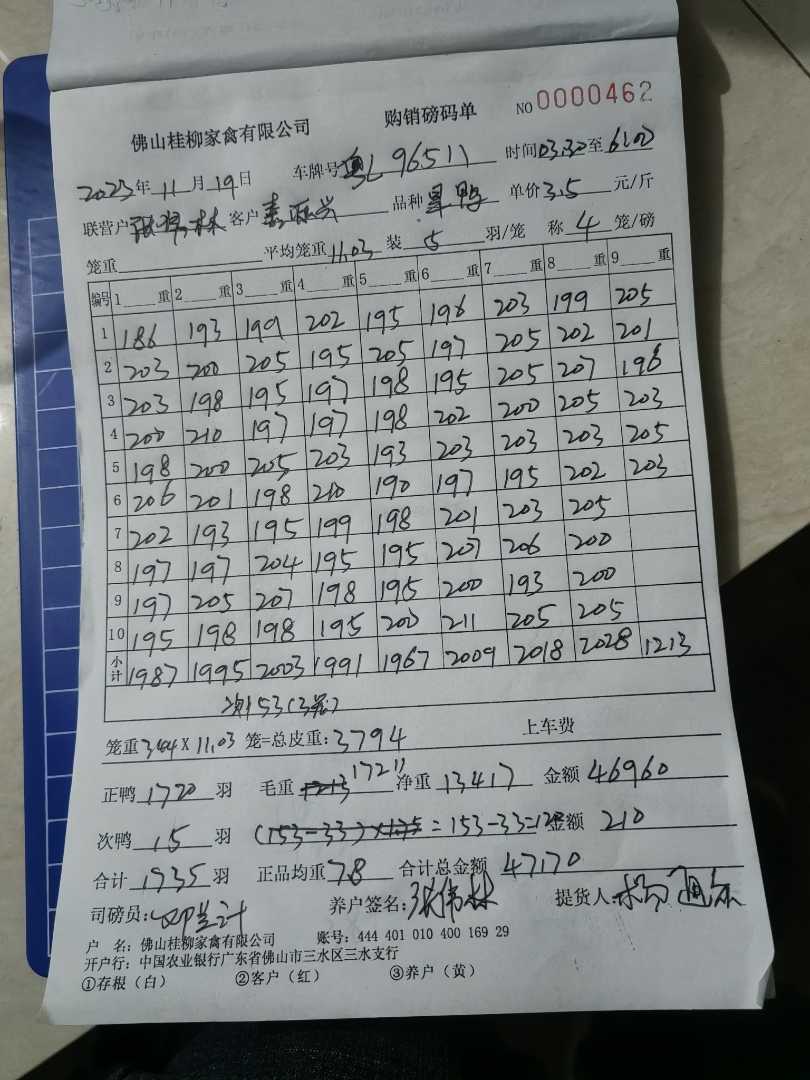 佛山桂柳家禽有限公司 购销磅码单 NO 0000462
2023年11月19日 车牌号粤L96511 时间03.30至6:00
联营户 张伟林 客户 品种 单价3.5元/斤
笼重 平均笼重11.03 装5羽/笼 称4笼/磅
编号 1重 2重 3重 4重 5重 6重 7重 8重 9重
1 186 193 199 202 195 196 203 199 205
2 203 200 205 195 205 197 205 202 201
3 203 198 195 197 198 195 205 207 196
4 200 210 197 197 198 202 200 205 203
5 198 200 205 203 193 203 203 203 205
6 206 201 198 210 190 197 195 202 203
7 202 193 195 199 198 201 203 205
8 197 197 204 195 195 207 206 200
9 197 205 207 198 195 200 193 200
10 195 198 198 195 200 211 205 205
小计 1987 1995 2003 1991 1967 2009 2018 2028 1213
次153(3笼)
笼重344X11.03笼=总皮重:3794 上车费
正鸭1720羽 毛重17211 净重13417 金额46960
次鸭15羽 =153-33=12 金额210
合计1735羽 正品均重7.8 合计总金额47170
司磅员: 养户签名:张伟林 提货人:
户 名:佛山桂柳家禽有限公司 账号:444 401 010 400 169 29
开户行:中国农业银行广东省佛山市三水区三水支行
①存根(白) ②客户(红) ③养户(黄)